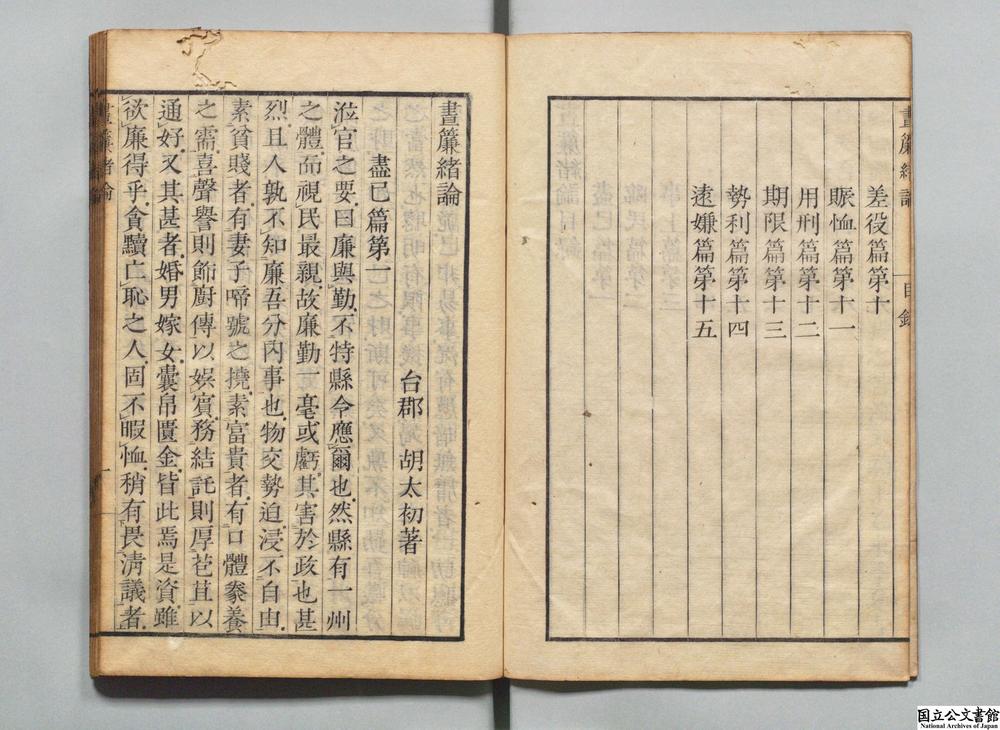 差役篇第十
賑恤篇第十一
用刑篇第十二
期限篇第十三
勢利篇第十四
遠嫌篇第十五
晝簾緒論
目錄
晝簾緒論
盡己篇第一
台郡 胡太初著
涖官之要曰廉與勤不特縣令應爾也然縣有一州
之體而視民最親故廉勤一毫或虧其害於政也甚
烈且人孰不知廉吾分內事也物交勢迫浸不自由
素貧賤者有妻子啼號之撓素富貴者有口體豢養
之需喜聲譽則飾廚傳以娛賓務結託則厚苞苴以
通好又其甚者婚男嫁女囊帛匱金皆此焉是資雖
欲廉得乎貪黷亡恥之人固不暇恤稍有畏淸議者
晝簾緒論
一
国立公文書館
National Archives of Japan